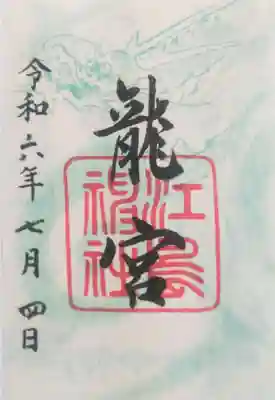 龍宮
江島神社
令和六年七月四日